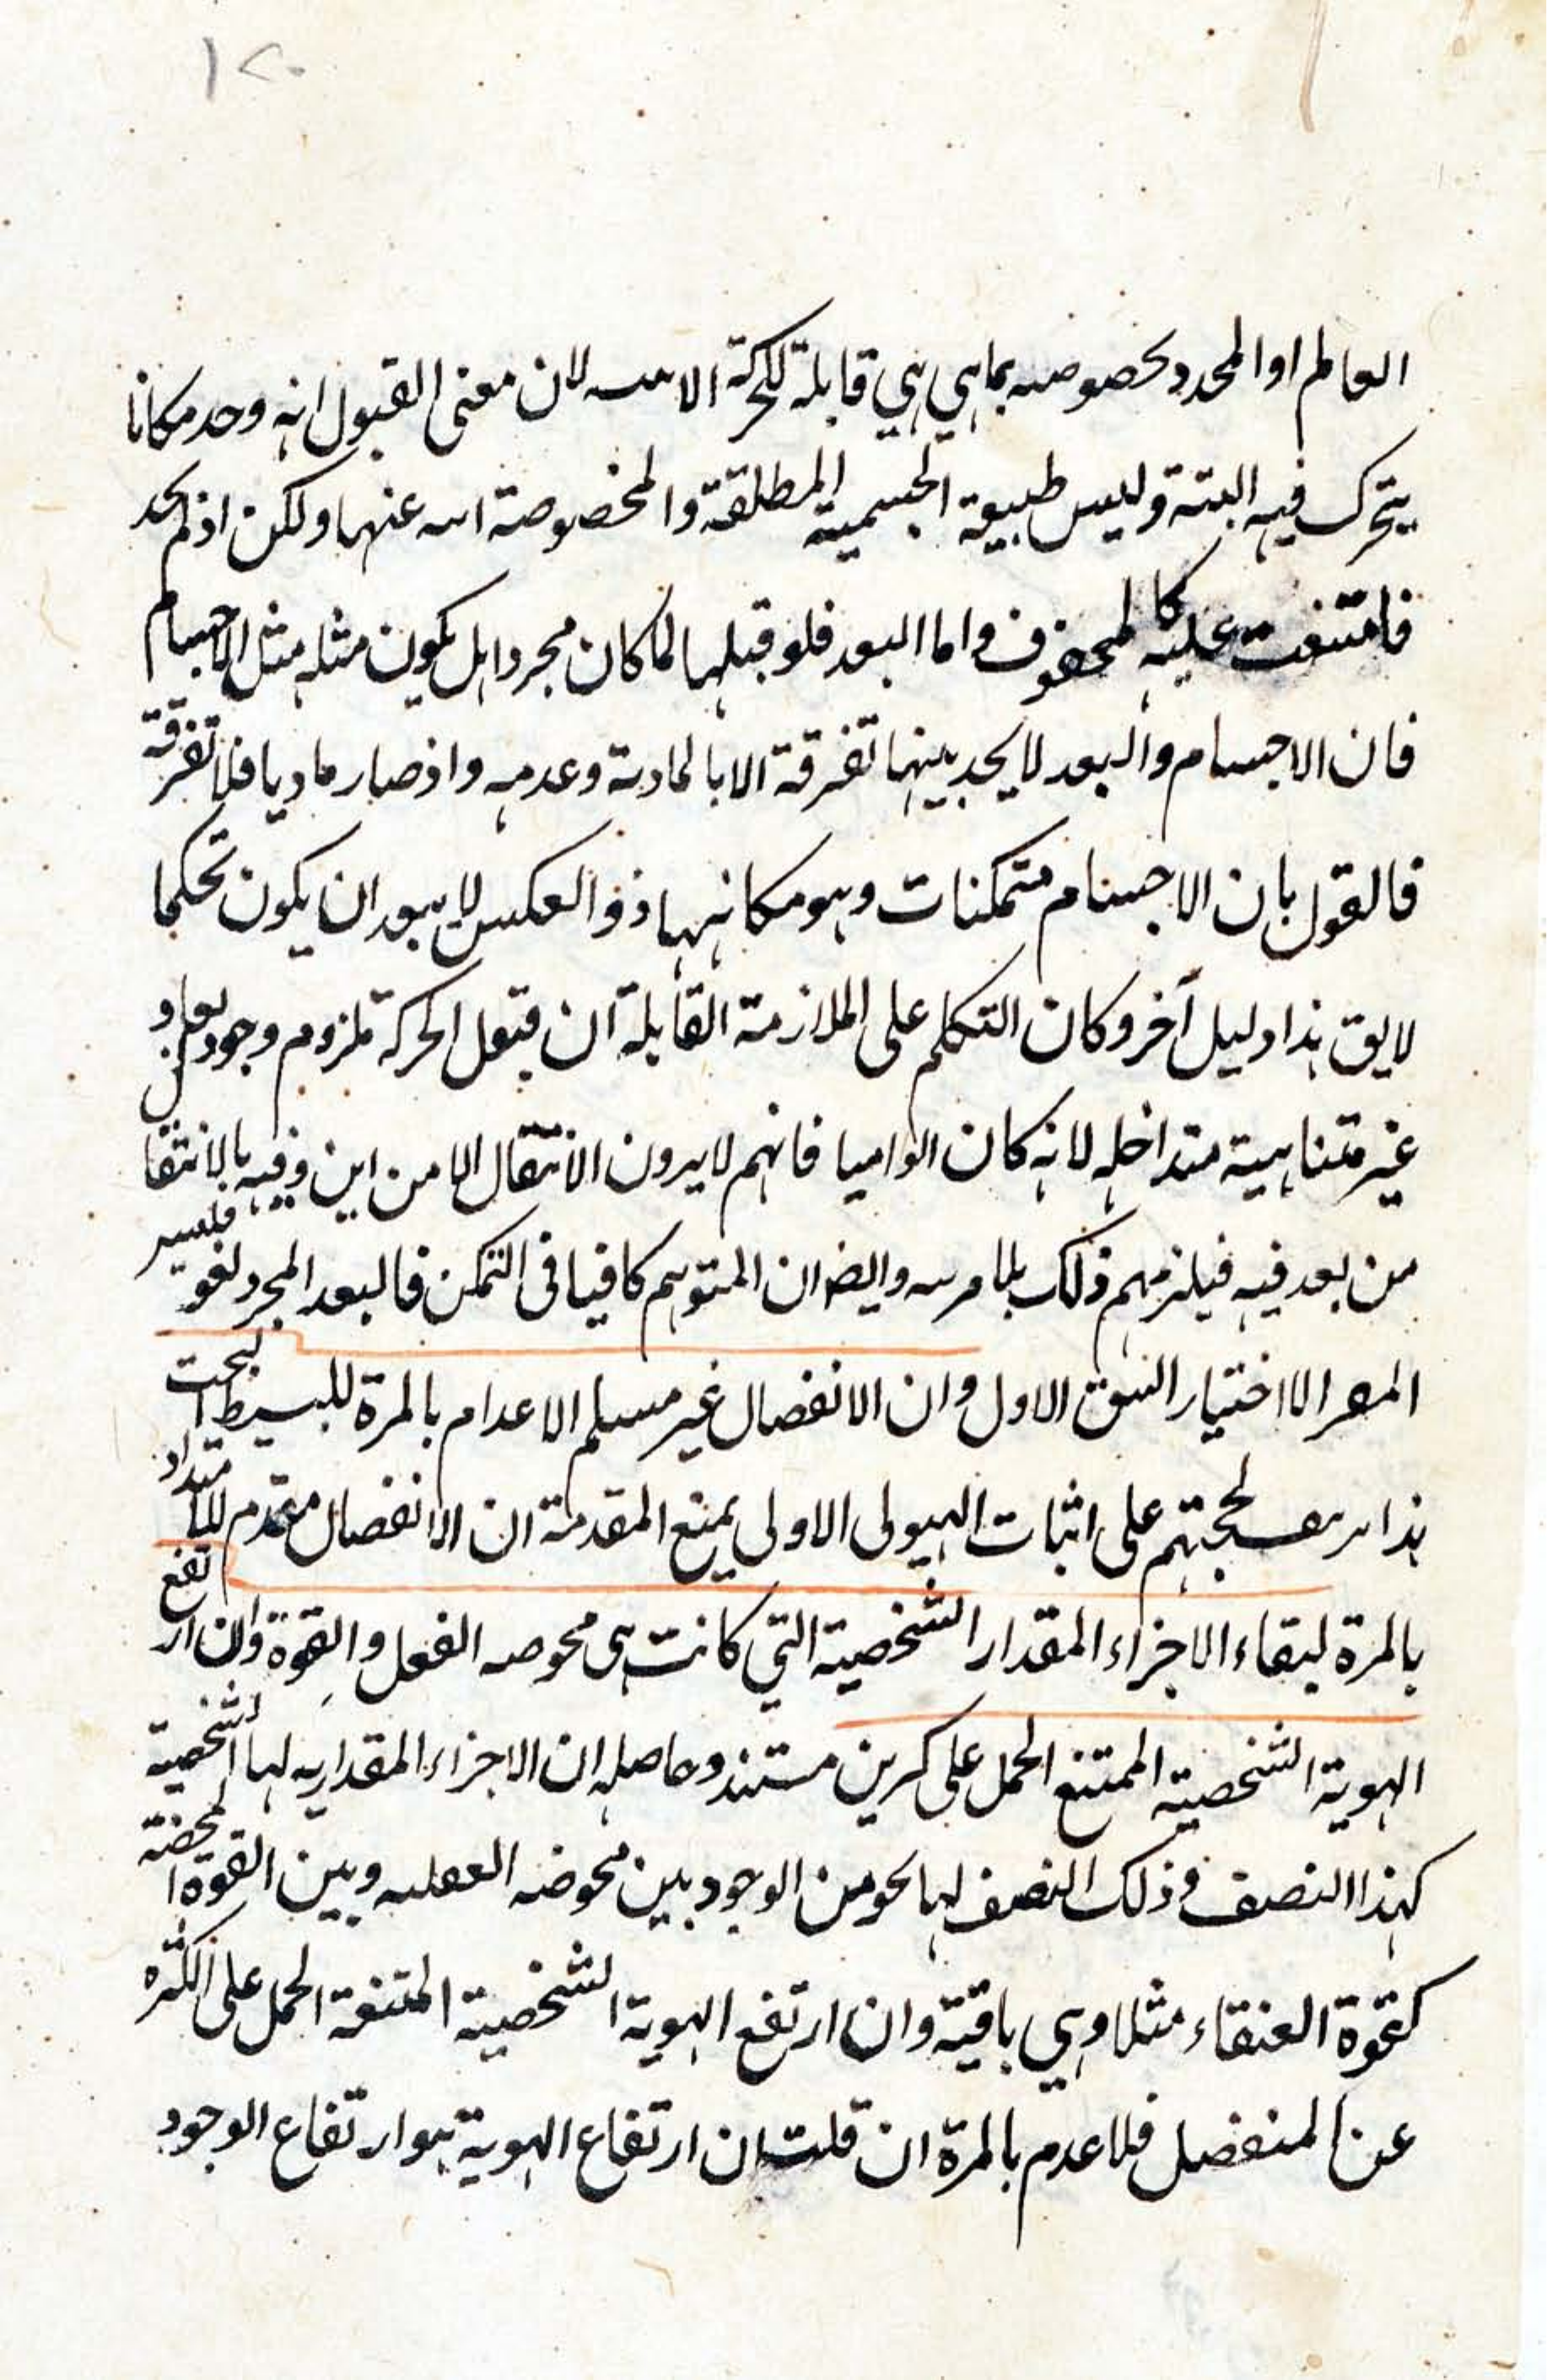 ١٢٠
العالم او المحدد بخصوصه بما هي هي قابلة للحركة الا لان معنى القبول انه وجد مكانا
يتحرك فيه البتة وليس طبيعة الجسمية المطلقة والمخصوصة عنها ولكن اذ لم يجد
فامتنعت عليه كالمحفوف واما البعد فلو قبلها لما كان مجردا بل يكون مثله مثل الاجسام
فان الاجسام والبعد لا يجد بينهما تفرقة الا بالمادية وعدمه واذ صار ماديا فلا تفرقة
فالقول بان الاجسام متمكنات وهو مكانها ذو العكس لا يبعد ان يكون تحكما
لايق هذا دليل آخر وكان التكلم على الملازمة القابلة ان قبول الحركة ملزوم وجود ابعاد
غير متناهية متداخله لانه كان الزاميا فانهم لا يرون الانتقال الا من اين وفيه بالانتقال
من بعد فيه فيلزمهم ذلك وايضا ان المتوهم كافيا في التمكن فالبعد المجرد لغو فليس
المفر الا اختيار الشق الاول وان الانفصال غير مسلم الاعدام بالمرة للبسيط البحت
هذا لحجتهم على اثبات الهيولى الاولى بمنع المقدمة ان الانفصال معدم للامتداد
بالمرة لبقاء الاجزاء المقدار الشخصية التي كانت هي محوصه الفعل والقوة وان ارتفع
الهوية الشخصية الممتنع الحمل على كرين مستند وحاصله ان الاجزاء المقداريه لها الشخصية
كهذا النصف وذلك النصف لها نحو من الوجود بين محوضه الفعليه وبين القوة المحضة
كقوة العنقاء مثلا وهي باقية وان ارتفع الهوية الشخصية الممتنعة الحمل على الكثره
عن المنفصل فلا عدم بالمرة ان قلت ان ارتفاع الهوية هو ارتفاع الوجود